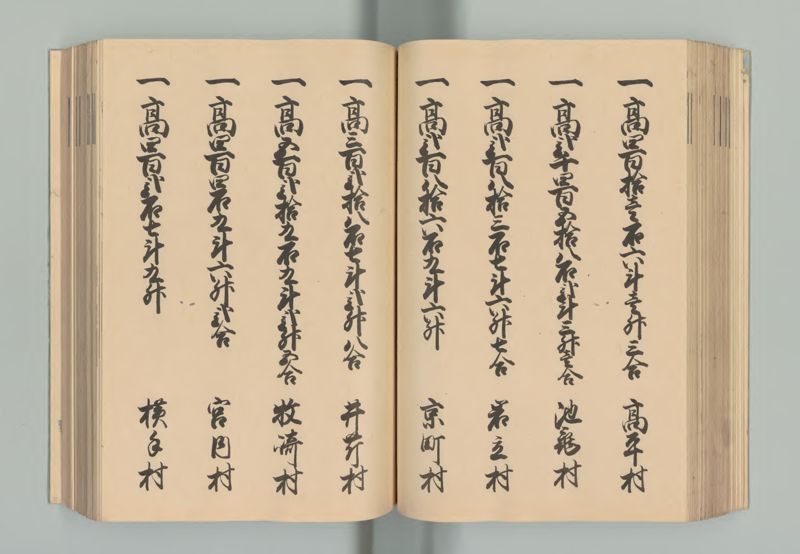 一高四百拾壱石六斗壱升三合 高平村
一高弐千四百五拾八石弐斗三升壱合 池 村
一高弐百八拾三石七斗六升七合 若立村
一高弐百八拾六石九斗六升 京町村
一高三百弐拾八石七斗弐升八合 井野村
一高五百弐拾五石九斗弐升五合 牧崎村
一高四百四石九斗六升弐合 宮内村
一高四百弐石七斗九升 横手村